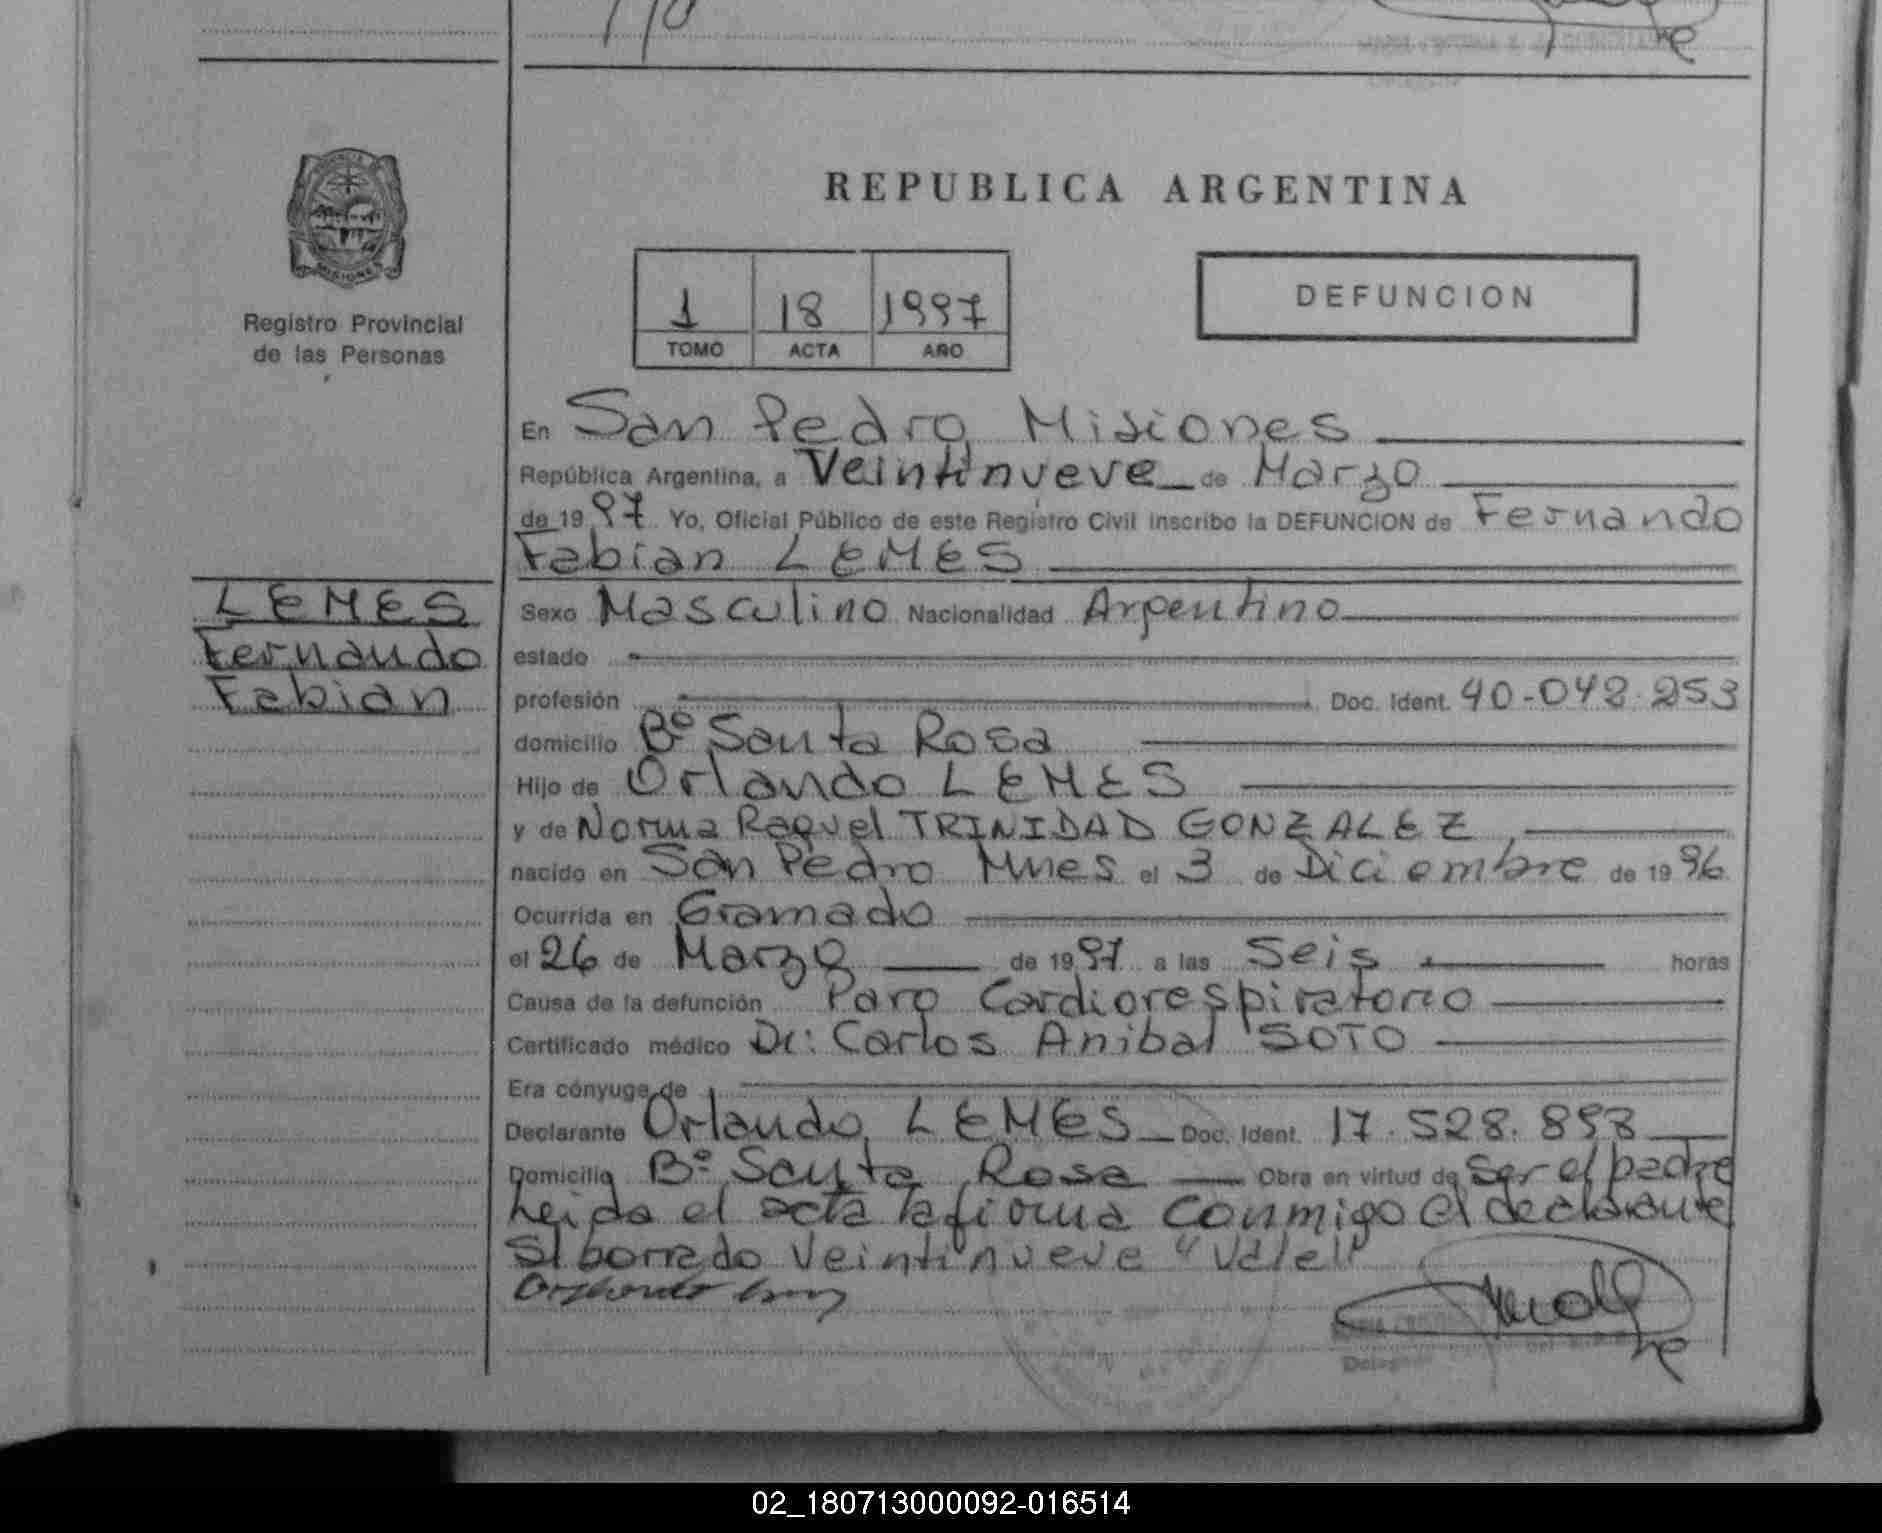 REPUBLICA ARGENTINA
MISIONES
Registro Provincial
de las Personas
1 18 1997
TOMO ACTA AÑO
DEFUNCION
En San Pedro Misiones
República Argentina, a Veintinueve de Marzo
de 1997 Yo, Oficial Público de este Registro Civil inscribo la DEFUNCION de Fernando
Fabian LEMES
LEMES
Fernando
Fabian
Sexo Masculino Nacionalidad Argentino
estado
profesión Doc. Ident. 40-048.253
domicilio Bº Santa Rosa
Hijo de Orlando LEMES
y de Norma Raquel TRINIDAD GONZALEZ
nacido en San Pedro Mnes el 3 de Diciembre de 1996
Ocurrida en Gramado
el 26 de Marzo de 1997 a las Seis horas
Causa de la defunción Paro Cardiorespiratorio
Certificado médico Dr: Carlos Anibal SOTO
Era cónyuge de
Declarante Orlando LEMES Doc. Ident. 17.528.898
Domicilio Bº Santa Rosa Obra en virtud de Ser el padre
Leida el acta la firma conmigo el declarante
S/borrado Veintinueve "Vale"
02_180713000092-016514